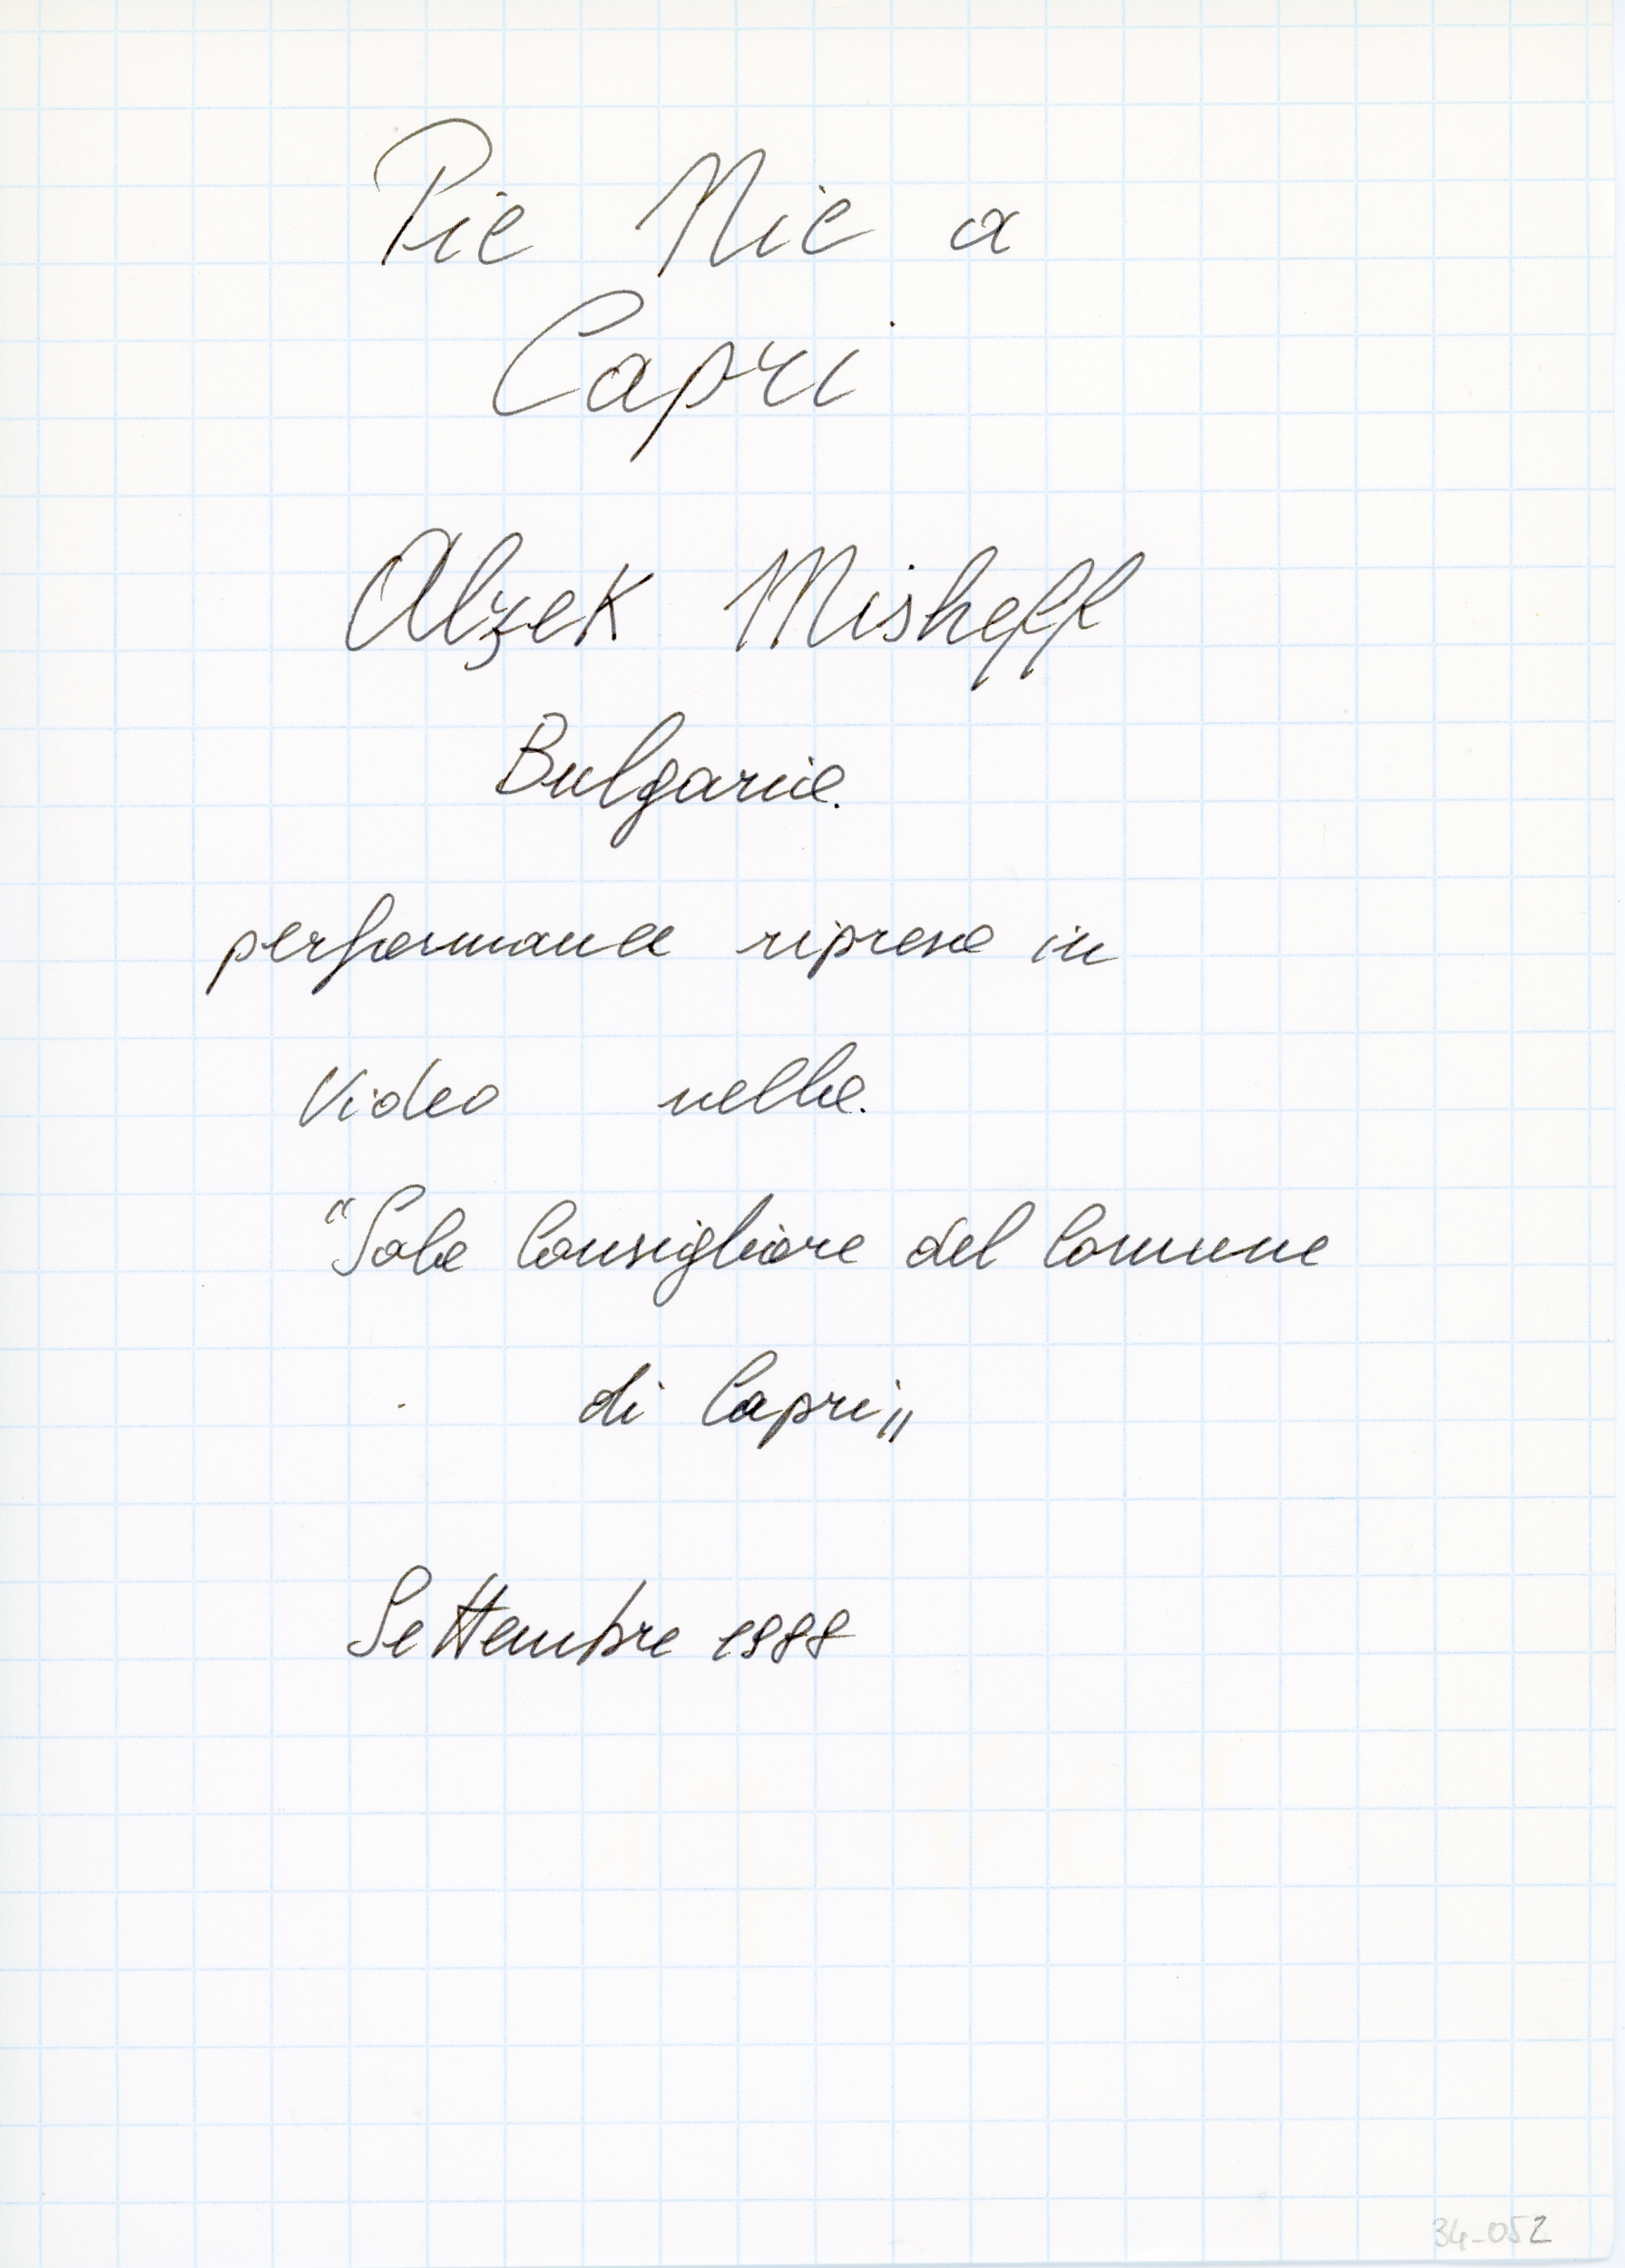 Pic Nic a
Capri
Alzek Misheff
Bulgaria
performance ripresa in
Video nella
"Sala Consigliare del Comune
di Capri"
Settembre 1988
34-052